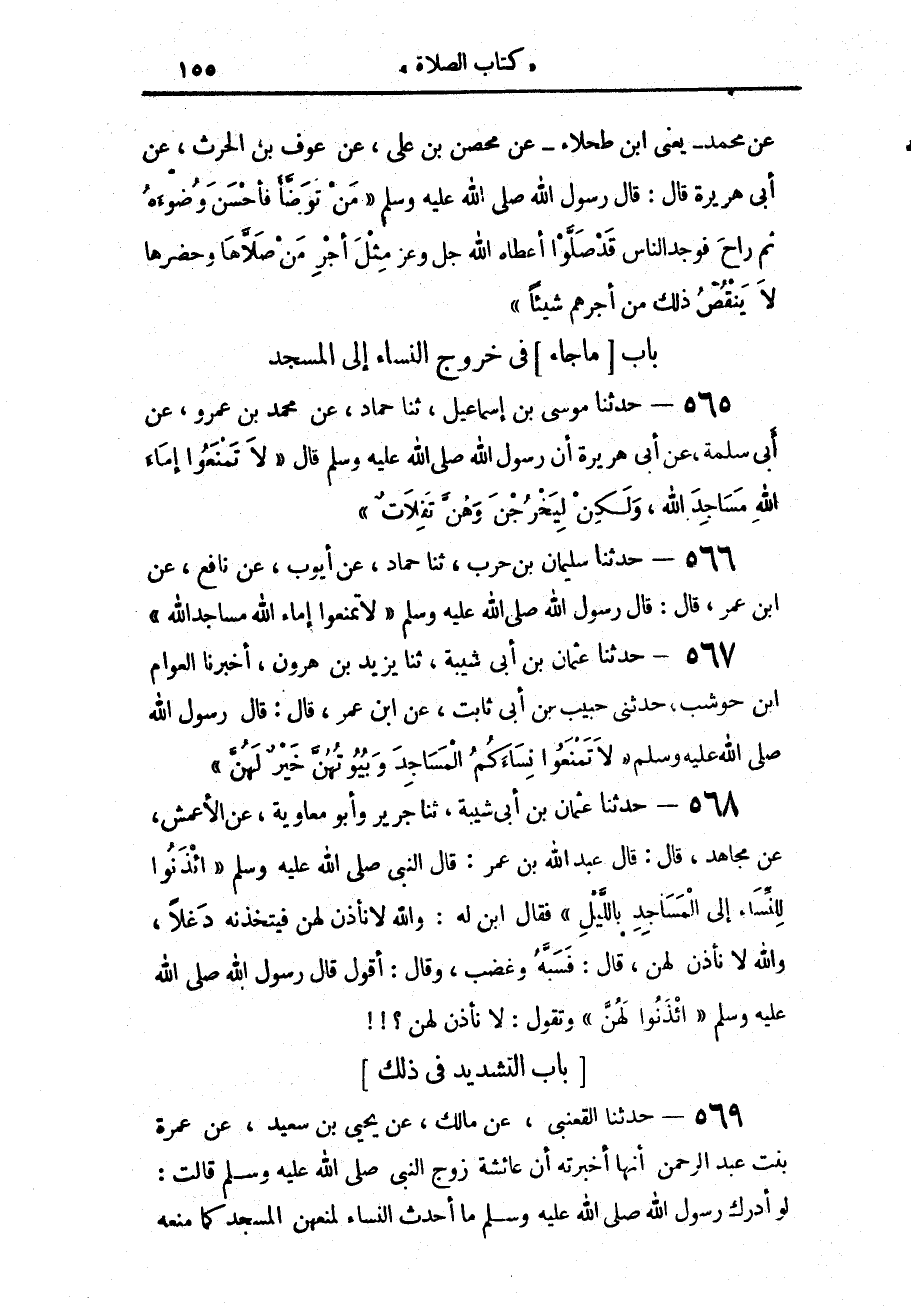 « كتاب الصلاة » ١٥٥
عن محمد ـ يعنى ابن طحلاء ـ عن محصن بن على ، عن عوف بن الحرث ، عن
أبى هريرة قال : قال رسول الله صلى الله عليه وسلم « مَنْ تَوَضَّأَ فأَحْسَنَ وَضُوءَهُ
ثم راحَ فوجد الناس قَدْ صَلَّوْا أعطاه الله جل وعز مِثْلَ أجْرِ مَنْ صَلَّاهَا وحضرها
لاَ يَنْقُصُ ذلك من أجرهم شيئاً »
باب [ ماجاء ] فى خروج النساء إلى المسجد
٥٦٥ — حدثنا موسى بن إسماعيل ، ثنا حماد ، عن محمد بن عمرو ، عن
أَبى سلمة ، عن أبى هريرة أن رسول الله صلى الله عليه وسلم قال « لاَ تَمْنَعُوا إمَاءَ
اللهِ مَسَاجِدَ الله ، وَلَكِنْ لِيَخْرُجْنَ وَهُنَّ تَفِلَاتٌ »
٥٦٦ — حدثنا سليمان بن حرب ، ثنا حماد ، عن أيوب ، عن نافع ، عن
ابن عمر ، قال : قال رسول الله صلى الله عليه وسلم « لا تمنعوا إماء الله مساجد الله »
٥٦٧ — حدثنا عثمان بن أبى شيبة ، ثنا يزيد بن هرون ، أخبرنا العوام
ابن حوشب ، حدثنى حبيب بن أبى ثابت ، عن ابن عمر ، قال : قال رسول الله
صلى الله عليه وسلم « لاَ تَمْنَعُوا نِسَاءَكُمُ الْمَسَاجِدَ وَبُيُوتُهُنَّ خَيْرٌ لَهُنَّ »
٥٦٨ — حدثنا عثمان بن أبى شيبة ، ثنا جرير وأبو معاوية ، عن الأعمش ،
عن مجاهد ، قال : قال عبد الله بن عمر : قال النبى صلى الله عليه وسلم « ائْذَنُوا
لِلنِّسَاءِ إلى الْمَسَاجِدِ بِاللَّيْلِ » فقال ابن له : والله لا نأذن لهن فيتخذنه دَغلاً ،
والله لا نأذن لهن ، قال : فَسَبَّهُ وغضب ، وقال : أقول قال رسول الله صلى الله
عليه وسلم « ائْذَنُوا لَهُنَّ » وتقول : لا نأذن لهن ؟!!!
[ باب التشديد فى ذلك ]
٥٦٩ — حدثنا القعنبى ، عن مالك ، عن يحيى بن سعيد ، عن عمرة
بنت عبد الرحمن أنها أخبرته أن عائشة زوج النبى صلى الله عليه وسلم قالت :
لو أدرك رسول الله صلى الله عليه وسلم ما أحدث النساء لمنعهن المسجد كما منعه